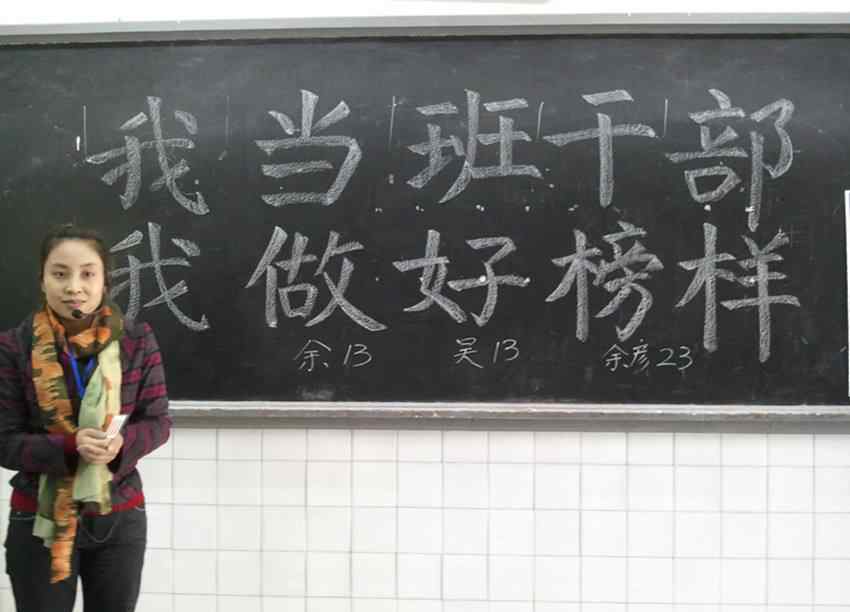 我当班干部
我做好榜样
余13 吴13 余彦23